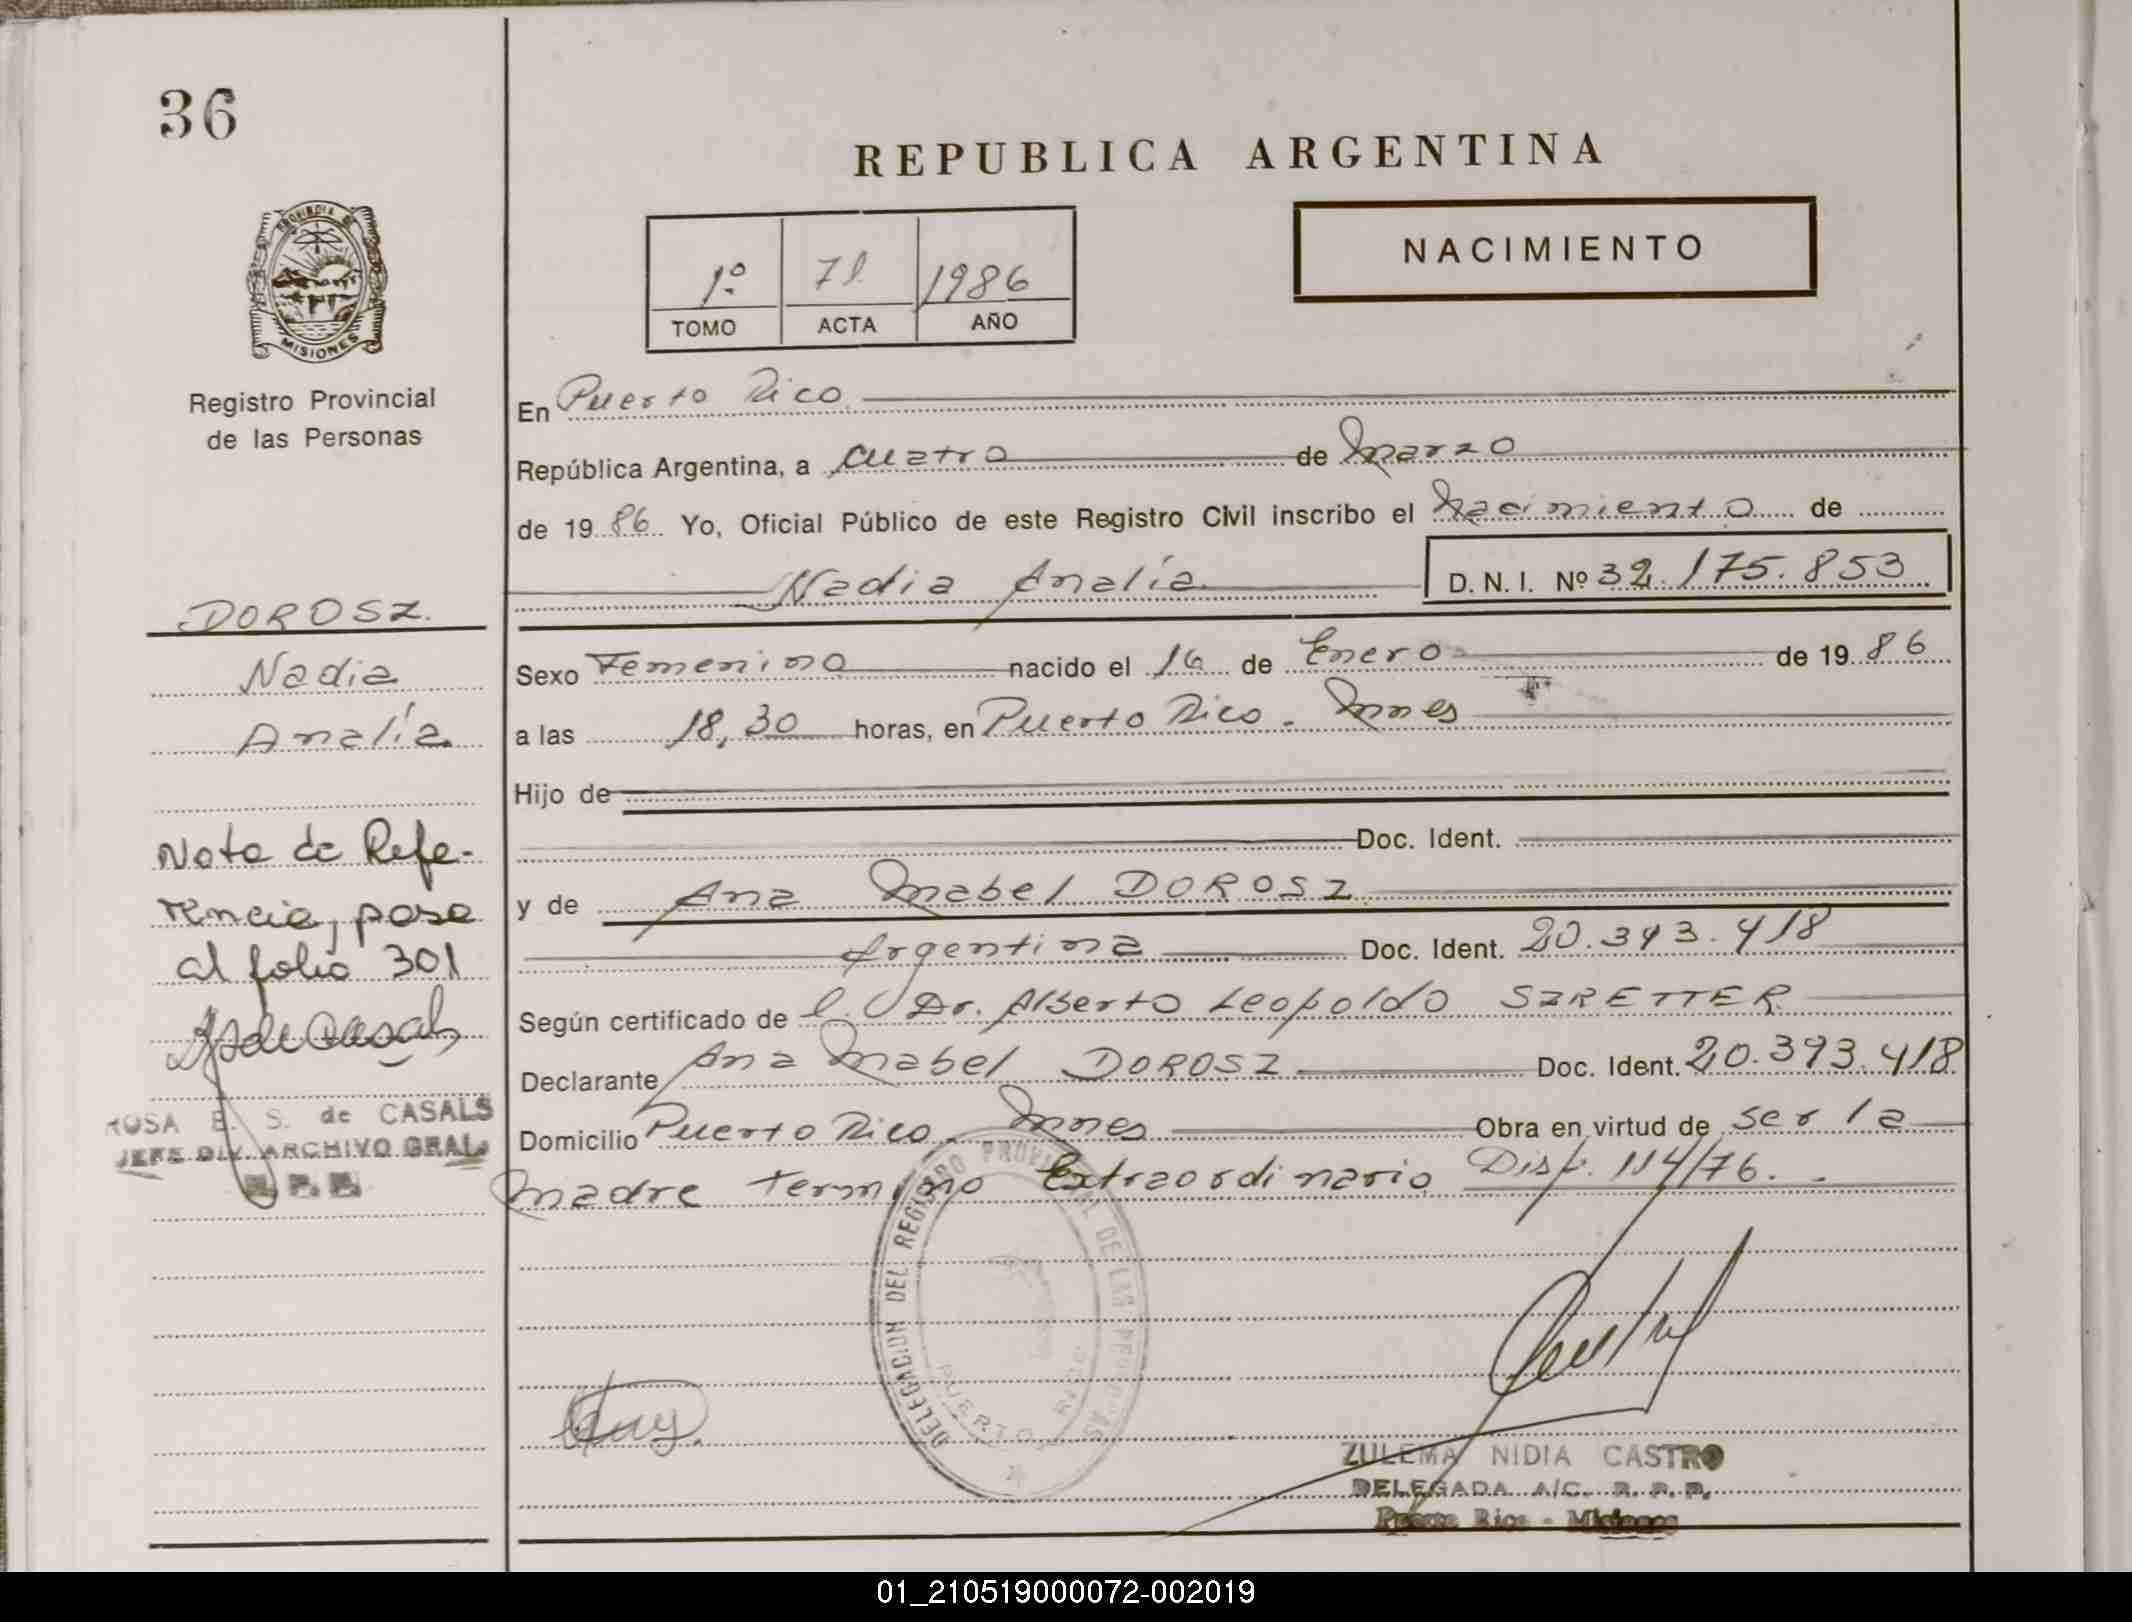 36
REPUBLICA ARGENTINA
PROVINCIA DE
MISIONES
Registro Provincial
de las Personas
1º 71 1986
TOMO ACTA AÑO
NACIMIENTO
En Puerto Rico
República Argentina, a cuatro de Marzo
de 19 86 Yo, Oficial Público de este Registro Civil inscribo el Nacimiento de
Nadia Analía D. N. I. Nº 32.175.853
DOROSZ.
Nadia
Analía
Nota de Refe-
rencia, pasa
al folio 301
ROSA E. S. de CASALS
JEFE DIV. ARCHIVO GRAL.
R. P. P.
Sexo Femenino nacido el 16 de Enero de 19 86
a las 18,30 horas, en Puerto Rico - Mnes
Hijo de
Doc. Ident.
y de Ana Mabel DOROSZ
Argentina Doc. Ident. 20.393.418
Según certificado de Dr. Alberto Leopoldo SZRETTER
Declarante Ana Mabel DOROSZ Doc. Ident. 20.393.418
Domicilio Puerto Rico - Mnes Obra en virtud de ser la
madre termino Extraordinario Disp. 114/76.
DELEGACION DEL REGISTRO PROVINCIAL DE LAS PERSONAS
PUERTO RICO
ZULEMA NIDIA CASTRO
DELEGADA A/C. R. P. P.
Puerto Rico - Misiones
01_210519000072-002019